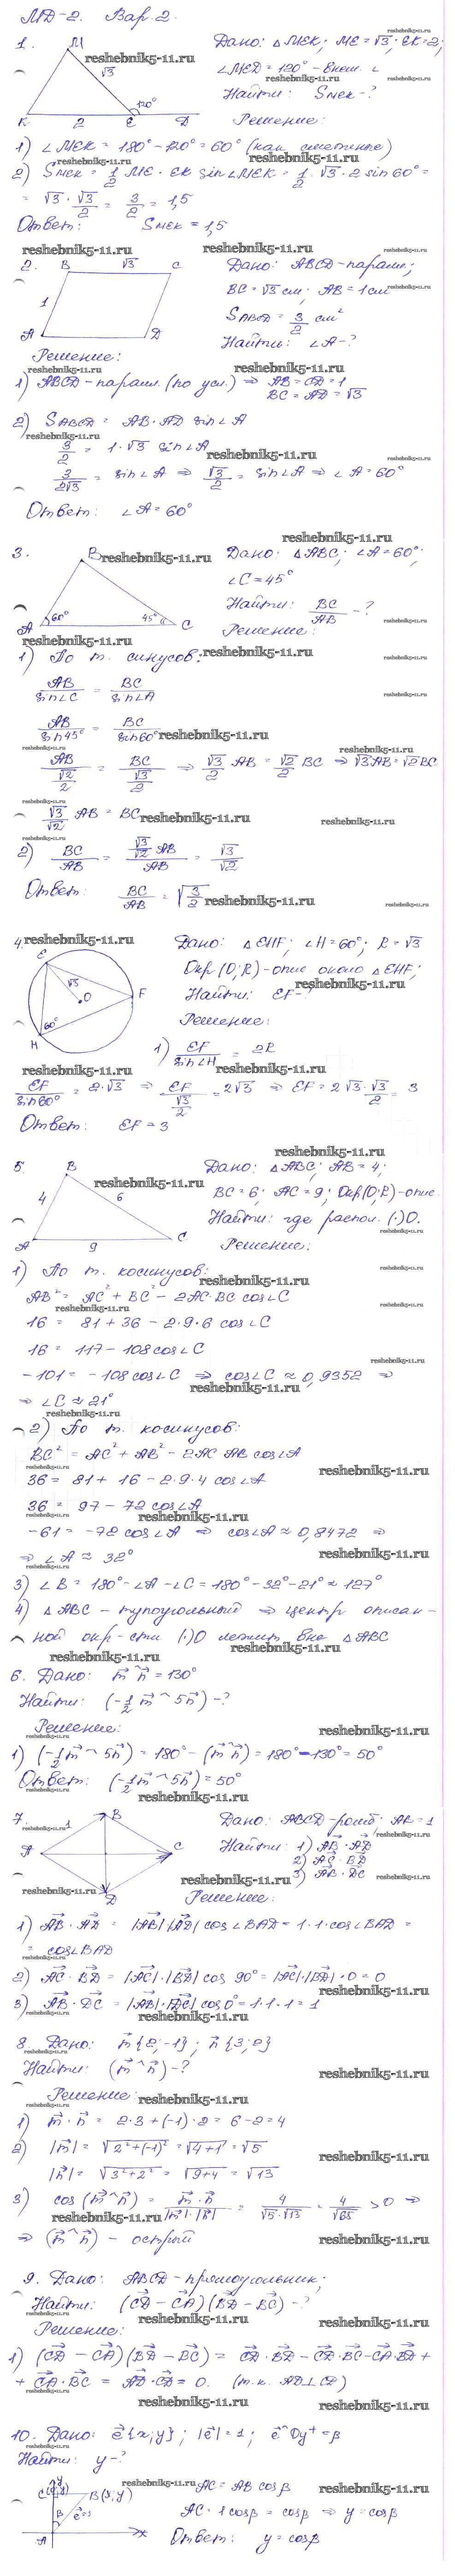 МД-2. Вар. 2.
1.
M
√3
120°
K 2 E D
Дано: △MEK; ME = √3; EK = 2;
∠MED = 120° - внеш. ∠
Найти: Sмек - ?
Решение:
1) ∠MEK = 180° - 120° = 60° (как смежные)
2) Sмек = 1/2 ME · EK sin∠MEK = 1/2 · √3 · 2 sin 60° =
= √3 · √3/2 = 3/2 = 1,5
Ответ: Sмек = 1,5
2.
B √3 C
1
A D
Дано: ABCD - парал.;
BC = √3 см; AB = 1 см
SABCD = 3/2 см²
Найти: ∠A - ?
Решение:
1) ABCD - парал. (по усл.) ⇒ AB = CD = 1
BC = AD = √3
2) SABCD = AB · AD sin∠A
3/2 = 1 · √3 sin∠A
3/2√3 = sin∠A ⇒ √3/2 = sin∠A ⇒ ∠A = 60°
Ответ: ∠A = 60°
3.
B
A 60° 45° C
Дано: △ABC; ∠A = 60°;
∠C = 45°
Найти: BC/AB - ?
Решение:
1) По т. синусов:
AB/sin∠C = BC/sin∠A
AB/sin45° = BC/sin60°
AB/(√2/2) = BC/(√3/2) ⇒ √3/2 AB = √2/2 BC ⇒ √3AB = √2BC
√3/√2 AB = BC
2) BC/AB = (√3/√2 AB)/AB = √3/√2
Ответ: BC/AB = √(3/2)
4.
E
√3
O F
60°
H
Дано: △EHF; ∠H = 60°; R = √3
Окр (O;R) - опис около △EHF;
Найти: EF - ?
Решение:
1) EF/sin∠H = 2R
EF/sin60° = 2·√3 ⇒ EF/(√3/2) = 2√3 ⇒ EF = 2√3 · √3/2 = 3
Ответ: EF = 3
5.
B
4 6
A 9 C
Дано: △ABC; AB = 4;
BC = 6; AC = 9; Окр(O;R) - опис.
Найти: где распол. (·)O.
Решение:
1) По т. косинусов:
AB² = AC² + BC² - 2AC·BC cos∠C
16 = 81 + 36 - 2·9·6 cos∠C
16 = 117 - 108cos∠C
-101 = -108cos∠C ⇒ cos∠C ≈ 0,9352 ⇒
⇒ ∠C ≈ 21°
2) По т. косинусов:
BC² = AC² + AB² - 2AC AB cos∠A
36 = 81 + 16 - 2·9·4 cos∠A
36 = 97 - 72 cos∠A
-61 = -72 cos∠A ⇒ cos∠A ≈ 0,8472 ⇒
⇒ ∠A ≈ 32°
3) ∠B = 180° - ∠A - ∠C = 180° - 32° - 21° ≈ 127°
4) △ABC - тупоугольный ⇒ центр описан-
ной окр-сти (·)O лежит вне △ABC
6. Дано: m⃗ ^ n⃗ = 130°
Найти: (-1/2 m⃗ ^ 5n⃗) - ?
Решение:
1) (-1/2 m⃗ ^ 5n⃗) = 180° - (m⃗ ^ n⃗) = 180° - 130° = 50°
Ответ: (-1/2 m⃗ ^ 5n⃗) = 50°
7.
1 B
A C
D
Дано: ABCD - ромб; AB = 1
Найти: 1) AB⃗ · AD⃗
2) AC⃗ · BD⃗
3) AB⃗ · DC⃗
Решение:
1) AB⃗ · AD⃗ = |AB⃗| |AD⃗| cos∠BAD = 1·1·cos∠BAD =
= cos∠BAD
2) AC⃗ · BD⃗ = |AC⃗|·|BD⃗| cos 90° = |AC⃗|·|BD⃗| · 0 = 0
3) AB⃗ · DC⃗ = |AB⃗|·|DC⃗| cos0° = 1·1·1 = 1
8. Дано: m⃗{2;-1}; n⃗{3;2}
Найти: (m⃗ ^ n⃗) - ?
Решение:
1) m⃗ · n⃗ = 2·3 + (-1)·2 = 6 - 2 = 4
2) |m⃗| = √(2² + (-1)²) = √(4+1) = √5
|n⃗| = √(3² + 2²) = √(9+4) = √13
3) cos(m⃗ ^ n⃗) = m⃗ · n⃗/|m⃗|·|n⃗| = 4/√5·√13 = 4/√65 > 0 ⇒
⇒ (m⃗ ^ n⃗) - острый
9. Дано: ABCD - прямоугольник;
Найти: (CD⃗ - CA⃗)(BD⃗ - BC⃗) - ?
Решение:
1) (CD⃗ - CA⃗)(BD⃗ - BC⃗) = CD⃗·BD⃗ - CD⃗·BC⃗ - CA⃗·BD⃗ +
+ CA⃗·BC⃗ = AD⃗·CD⃗ = 0. (т.к. AD⊥CD)
10. Дано: e⃗{x;y}; |e⃗| = 1; e⃗ ^ Oy⁺ = β
Найти: y - ?
y
B(x;y)
β e⃗=1
A x
AC = AB cosβ
AC · 1cosβ = cosβ ⇒ y = cosβ
Ответ: y = cosβ
reshebnik5-11.ru